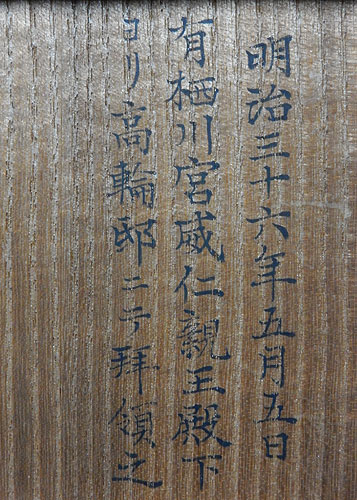 明治三十六年五月五日
有栖川宮威仁親王殿下
ヨリ高輪邸ニテ拝領之